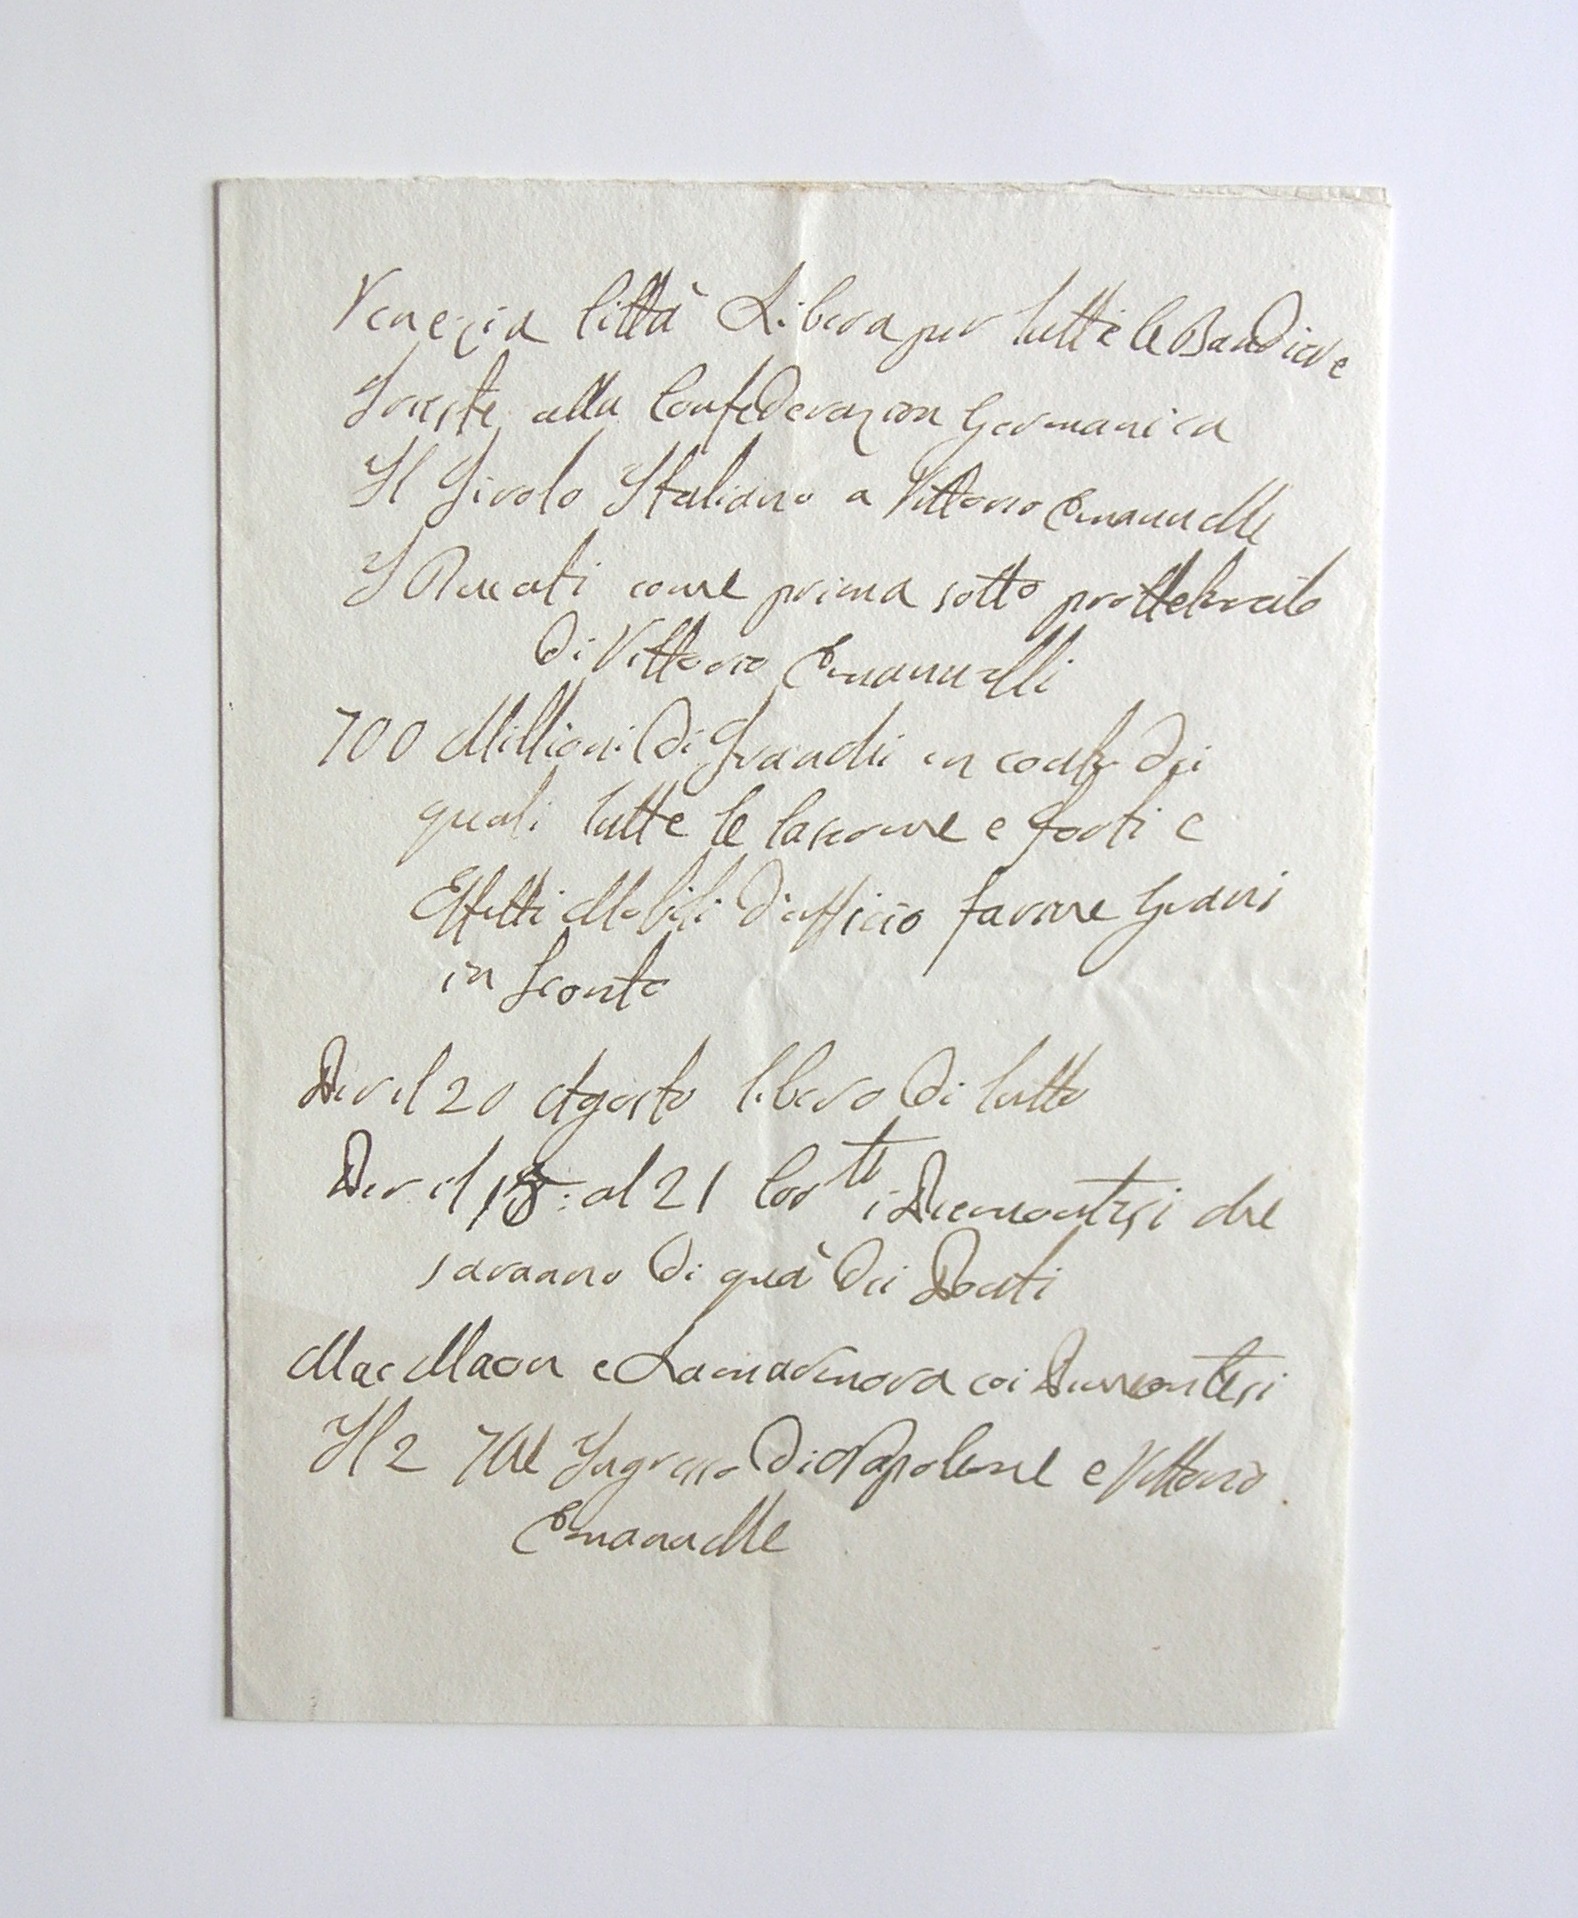 Venezia Città Libera per tutte le Bandiere
Trieste alla Confederazion Germanica
Il Tirolo Italiano a Vittorio Emanuelle
I Ducati come prima sotto prottetorato
di Vittorio Emanuelli
700 Millioni di Franchi in conto dei
quali tutte le Caserme e forti e
Effetti Mobili d'ufficio farine Grani
in sconto
Per il 20 Agosto libero di tutto
Per il 18: al 21 Corte i Piemontesi che
saranno di quà dei Ponti
Mac Maon e Lamarmora coi Piemontesi
Il 2 7bre Ingresso di Napoleone e Vittorio
Emanuelle